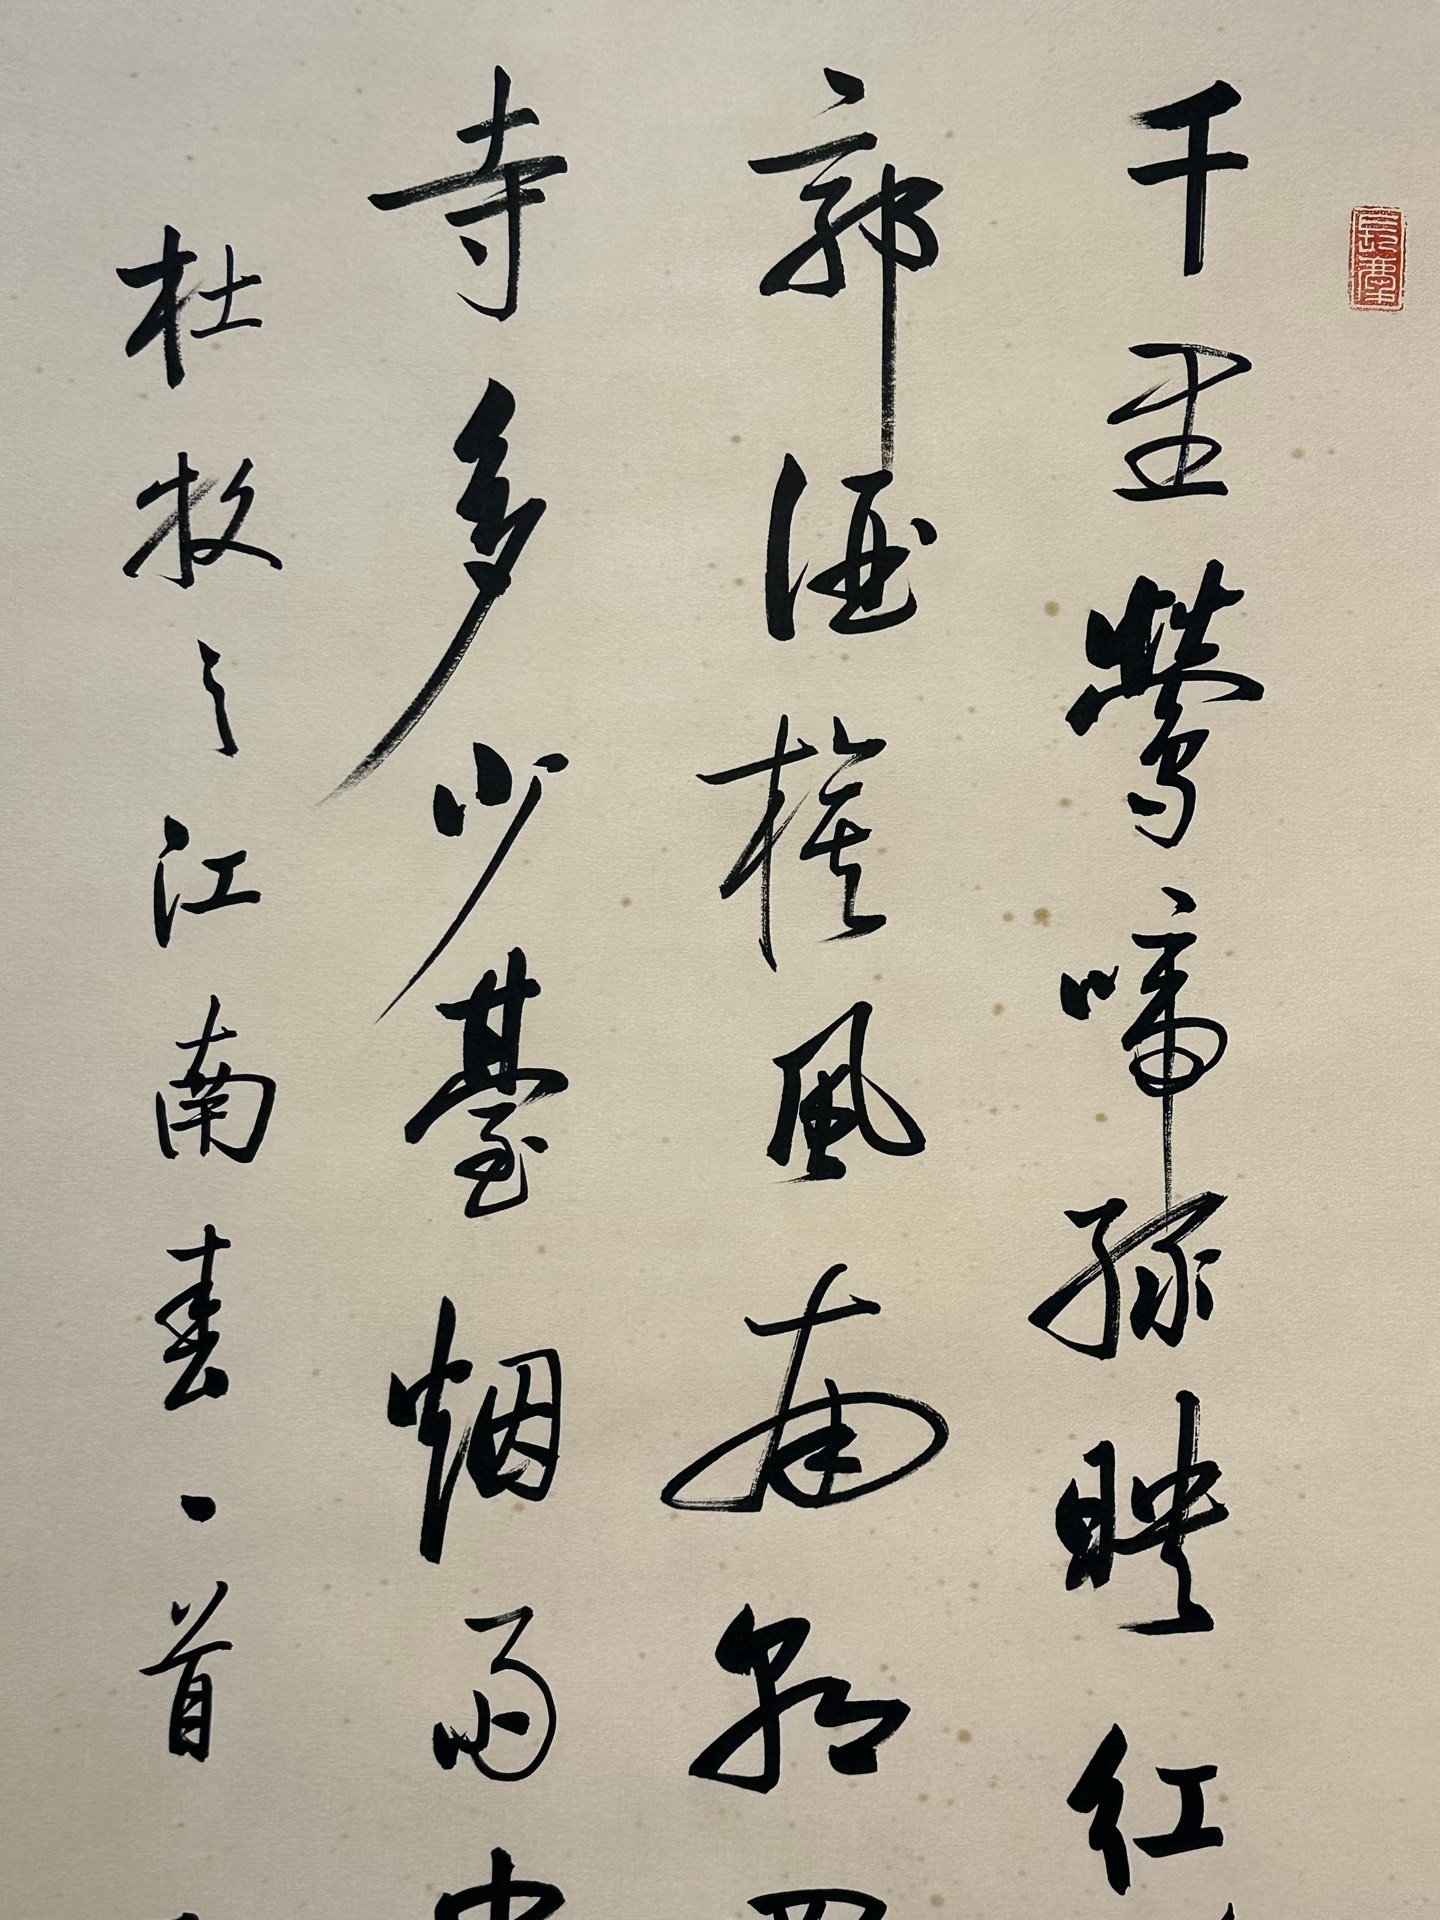 千里鶯啼綠映紅
郭酒旗風南朝四
寺多少臺烟雨中
杜牧之江南春一首